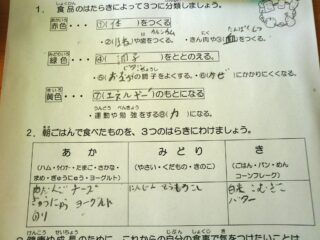 1. 食品のはたらきによって3つに分類しましょう。
赤色・・・ ①(体)をつくる
・②(ほね)や歯をつくる。 ・きん肉や③(血)をつくる。
緑色・・・ ④(調子)をととのえる。
・⑤(おなか)の調子をよくする。 ・⑥(かぜ)にかかりにくくなる。
黄色・・・ ⑦(エネルギー)のもとになる
・運動や勉強をする⑧(力)になる。
2. 朝ごはんで食べたものを、3つのはらきにわけましょう。
あか みどり き
(ハム・ウインナ・たまご・さかな・まめ・ぎゅうにゅう・ヨーグルト) (やさい・くだもの・きのこ) (ごはん・パン・めんコーンフレーク)
チーズ にんじん とうもろこし 白米 こむぎこ
ぎゅうにゅう ヨーグルト バター
のり